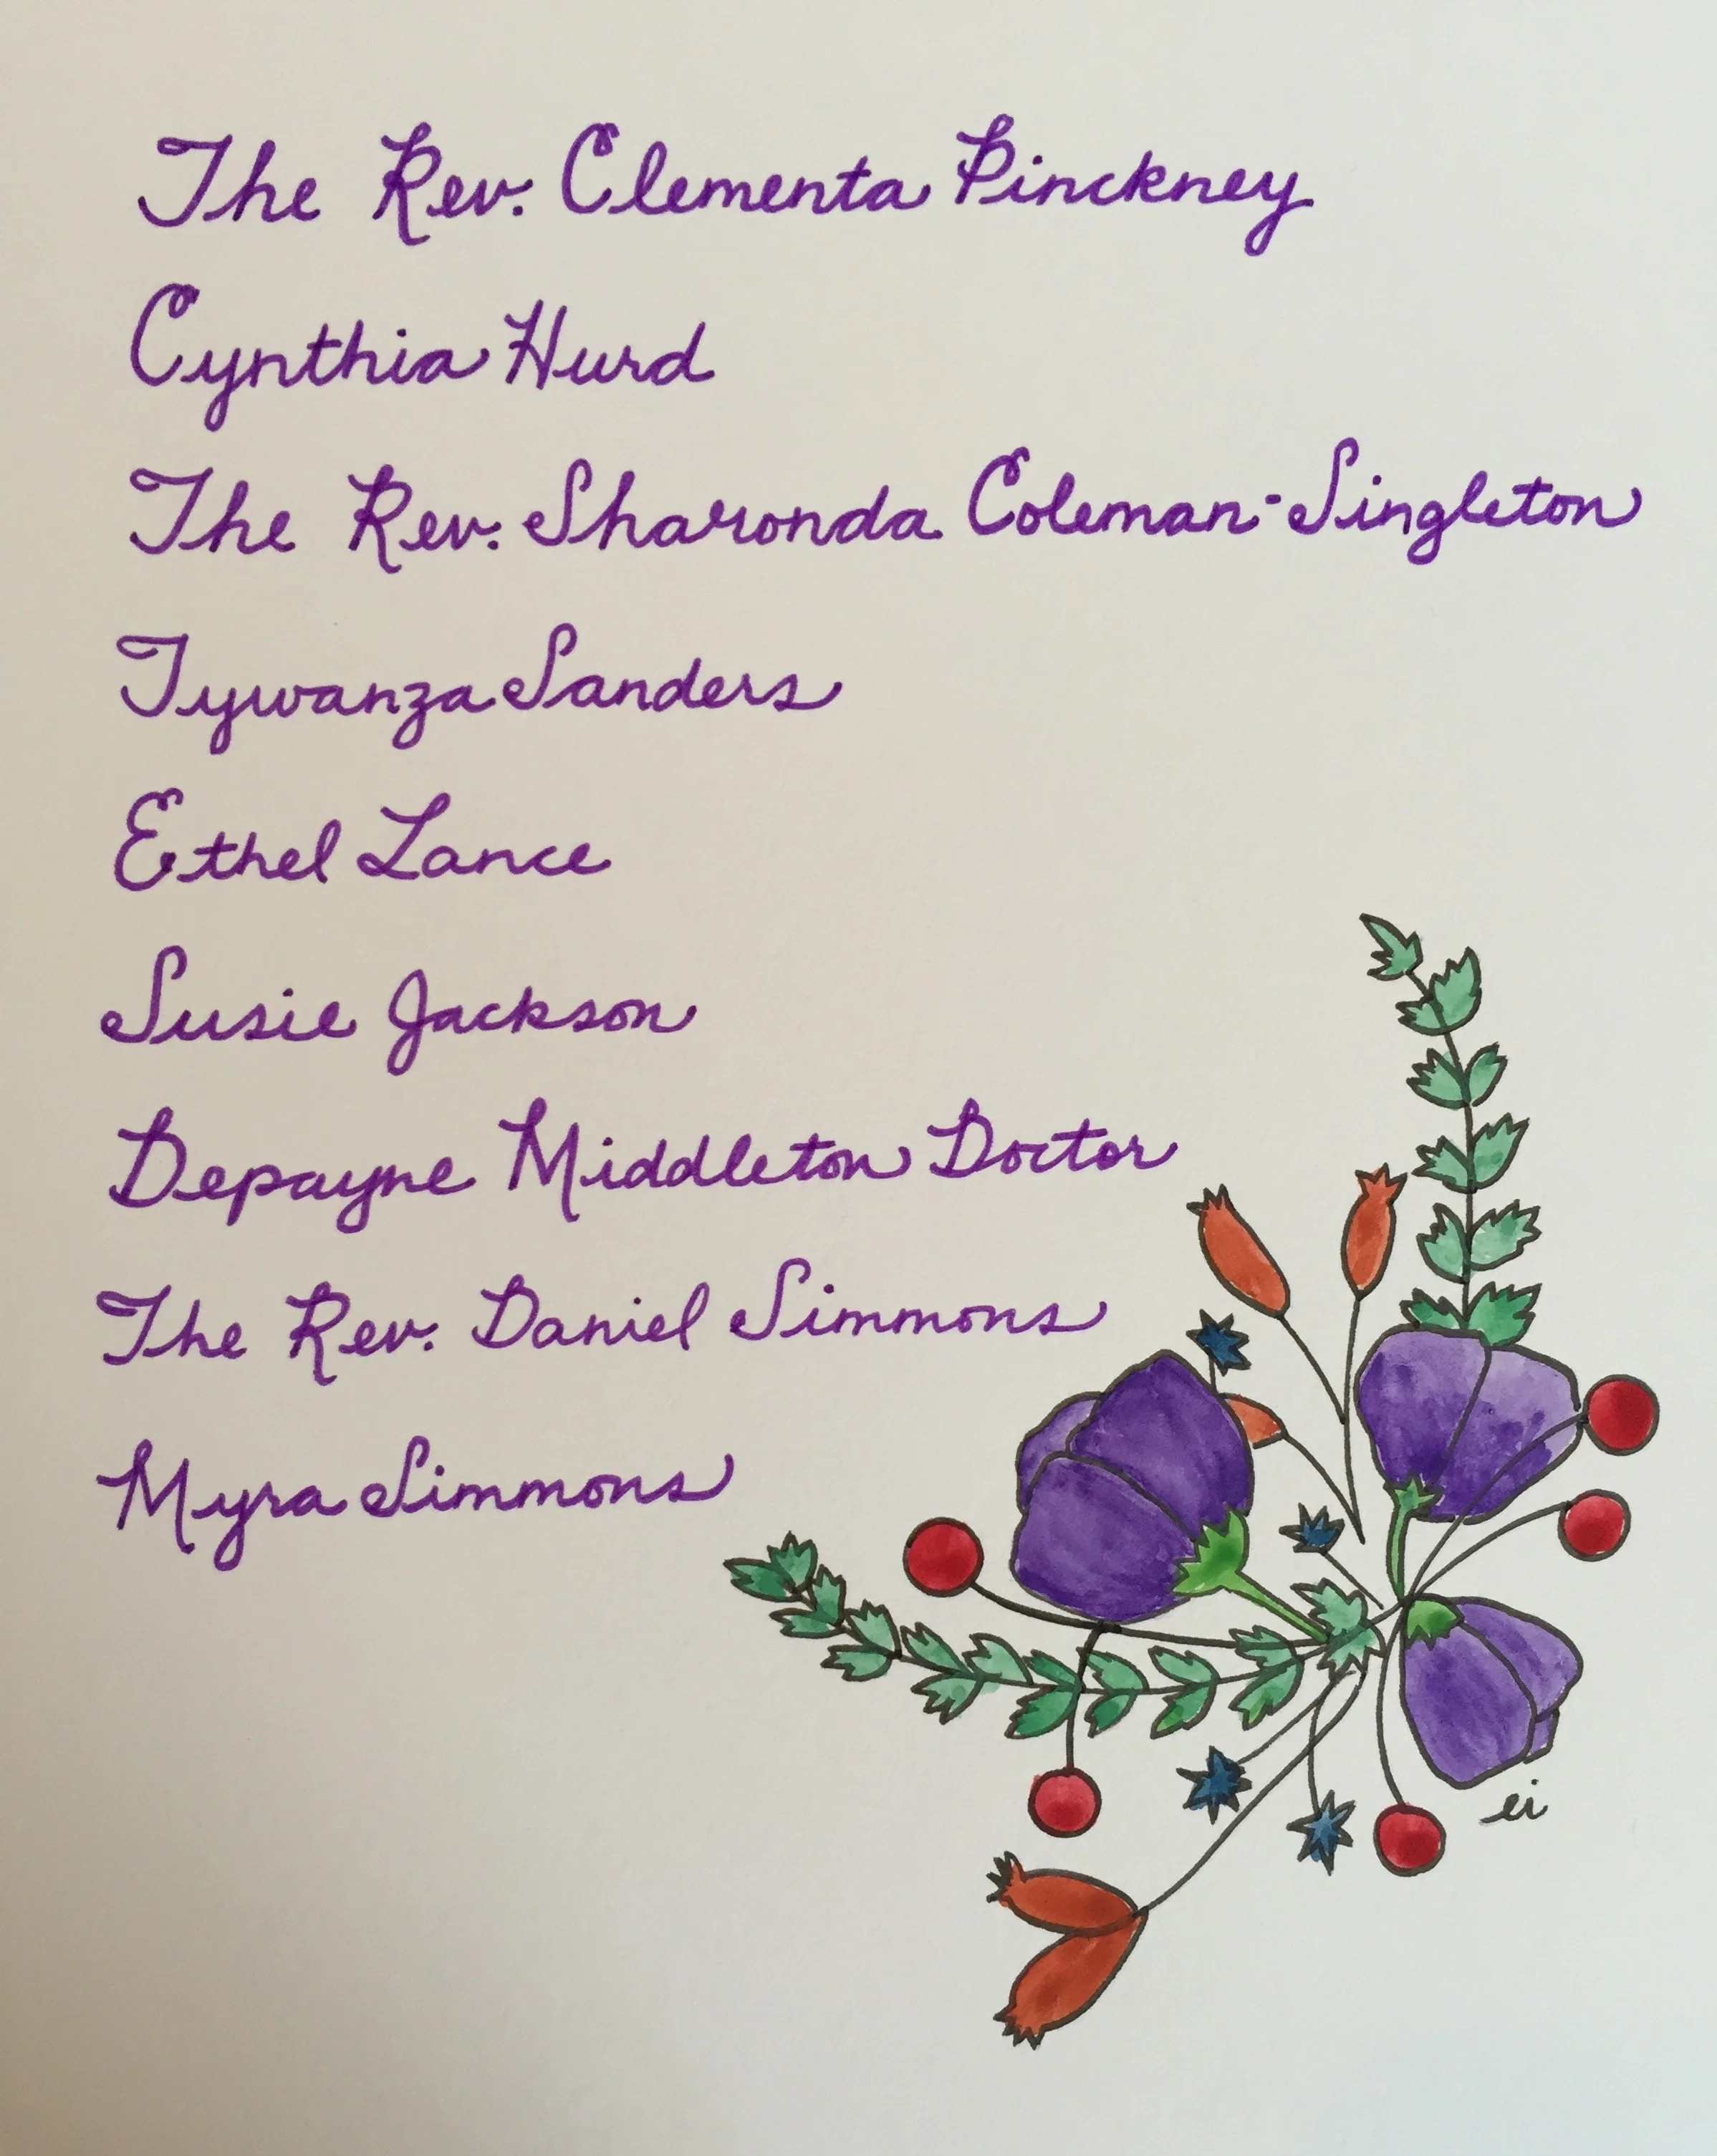 The Rev. Clementa Pinckney
Cynthia Hurd
The Rev. Sharonda Coleman-Singleton
Tywanza Sanders
Ethel Lance
Susie Jackson
Depayne Middleton Doctor
The Rev. Daniel Simmons
Myra Simmons
ei